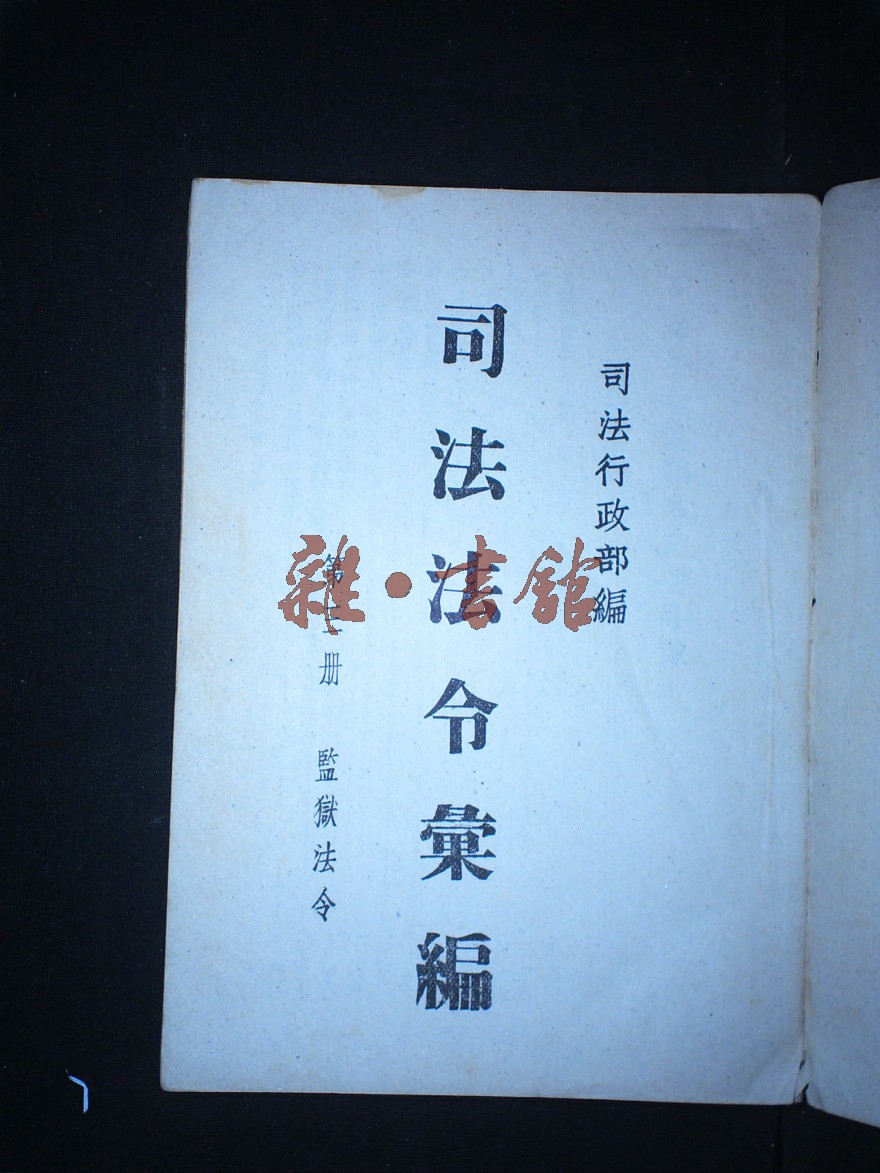 司法行政部編
司法法令彙編
第三册　監獄法令
雜·書館